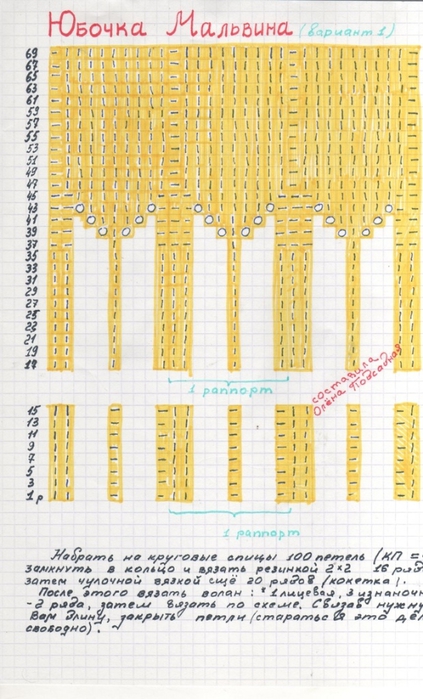 Юбочка Мальвина (вариант 1)
69
67
65
63
61
59
57
55
53
51
49
47
45
43
41
39
37
35
33
31
29
27
25
23
21
19
17
1 раппорт
составила
Олёна Подсадная
15
13
11
9
7
5
3
1 р
1 раппорт
Набрать на круговые спицы 100 петель (КП =
замкнуть в кольцо и вязать резинкой 2×2 16 ряд
затем чулочной вязкой ещё 20 рядов (кокетка).
После этого вязать волан: * 1 лицевая, 3 изнаноч
- 2 ряда, затем вязать по схеме. Связав нужну
Вам длину, закрыть петли (стараться это дел
свободно).